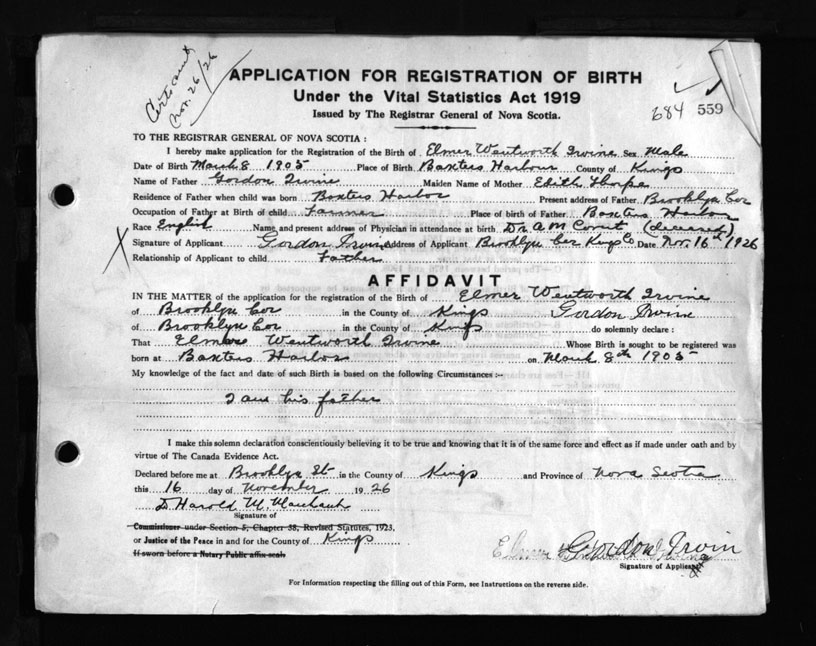 Nov. 26/26
APPLICATION FOR REGISTRATION OF BIRTH
Under the Vital Statistics Act 1919
Issued by The Registrar General of Nova Scotia.
684 559
TO THE REGISTRAR GENERAL OF NOVA SCOTIA :
I hereby make application for the Registration of the Birth of Elmer Wentworth Irvine Sex Male
Date of Birth March 8 1905 Place of Birth Baxters Harbour County of Kings
Name of Father Gordon Irvine Maiden Name of Mother Edith Thorpe
Residence of Father when child was born Baxters Harbor Present address of Father Brooklyn Cor
Occupation of Father at Birth of child Farmer Place of birth of Father Baxters Harbor
Race English Name and present address of Physician in attendance at birth Dr A M (deceased)
Signature of Applicant Gordon Irvine Address of Applicant Brooklyn Cor Kings Co Date Nov. 16th 1926
Relationship of Applicant to child Father
AFFIDAVIT
IN THE MATTER of the application for the registration of the Birth of Elmer Wentworth Irvine
of Brooklyn Cor in the County of Kings Gordon Irvine
of Brooklyn Cor in the County of Kings do solemnly declare :
That Elmer Wentworth Irvine Whose Birth is sought to be registered was
born at Baxters Harbor on March 8th 1905
My knowledge of the fact and date of such Birth is based on the following Circumstances :-
I am his father
I make this solemn declaration conscientiously believing it to be true and knowing that it is of the same force and effect as if made under oath and by
virtue of The Canada Evidence Act.
Declared before me at Brooklyn St in the County of Kings and Province of Nova Scotia
this 16 day of November 1926
Harold M.
Signature of
Commissioner under Section 5, Chapter 38, Revised Statutes, 1923,
or Justice of the Peace in and for the County of Kings
If sworn before a Notary Public affix seal.
Elmer Gordon Irvin
Signature of Applicant
For Information respecting the filling out of this Form, see Instructions on the reverse side.